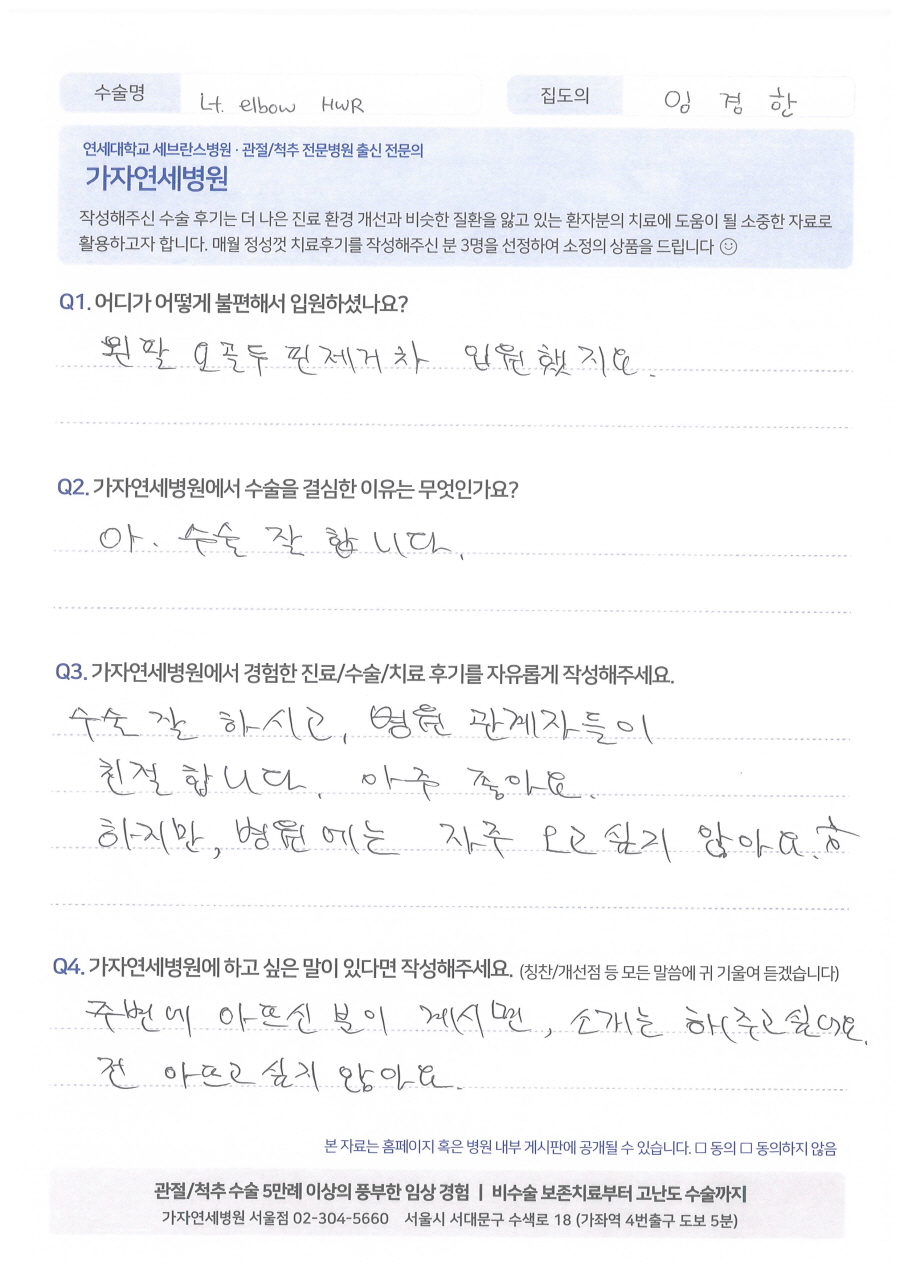 수술명 Lt. elbow HWR 집도의 임 경 한
연세대학교 세브란스병원 · 관절/척추 전문병원 출신 전문의
가자연세병원
작성해주신 수술 후기는 더 나은 진료 환경 개선과 비슷한 질환을 앓고 있는 환자분의 치료에 도움이 될 소중한 자료로
활용하고자 합니다. 매월 정성껏 치료후기를 작성해주신 분 3명을 선정하여 소정의 상품을 드립니다 ☺
Q1. 어디가 어떻게 불편해서 입원하셨나요?
왼팔 요골두 핀제거차 입원했지요.
Q2. 가자연세병원에서 수술을 결심한 이유는 무엇인가요?
아. 수술 잘 합니다.
Q3. 가자연세병원에서 경험한 진료/수술/치료 후기를 자유롭게 작성해주세요.
수술 잘 하시고, 병원 관계자들이
친절합니다. 아주 좋아요.
하지만, 병원에는 자주 오고싶지 않아요.
Q4. 가자연세병원에 하고 싶은 말이 있다면 작성해주세요. (칭찬/개선점 등 모든 말씀에 귀 기울여 듣겠습니다)
주변에 아프신 분이 계시면, 소개는 해주고싶어요.
전 아프고싶지 않아요.
본 자료는 홈페이지 혹은 병원 내부 게시판에 공개될 수 있습니다. □ 동의 □ 동의하지 않음
관절/척추 수술 5만례 이상의 풍부한 임상 경험 | 비수술 보존치료부터 고난도 수술까지
가자연세병원 서울점 02-304-5660 서울시 서대문구 수색로 18 (가좌역 4번출구 도보 5분)